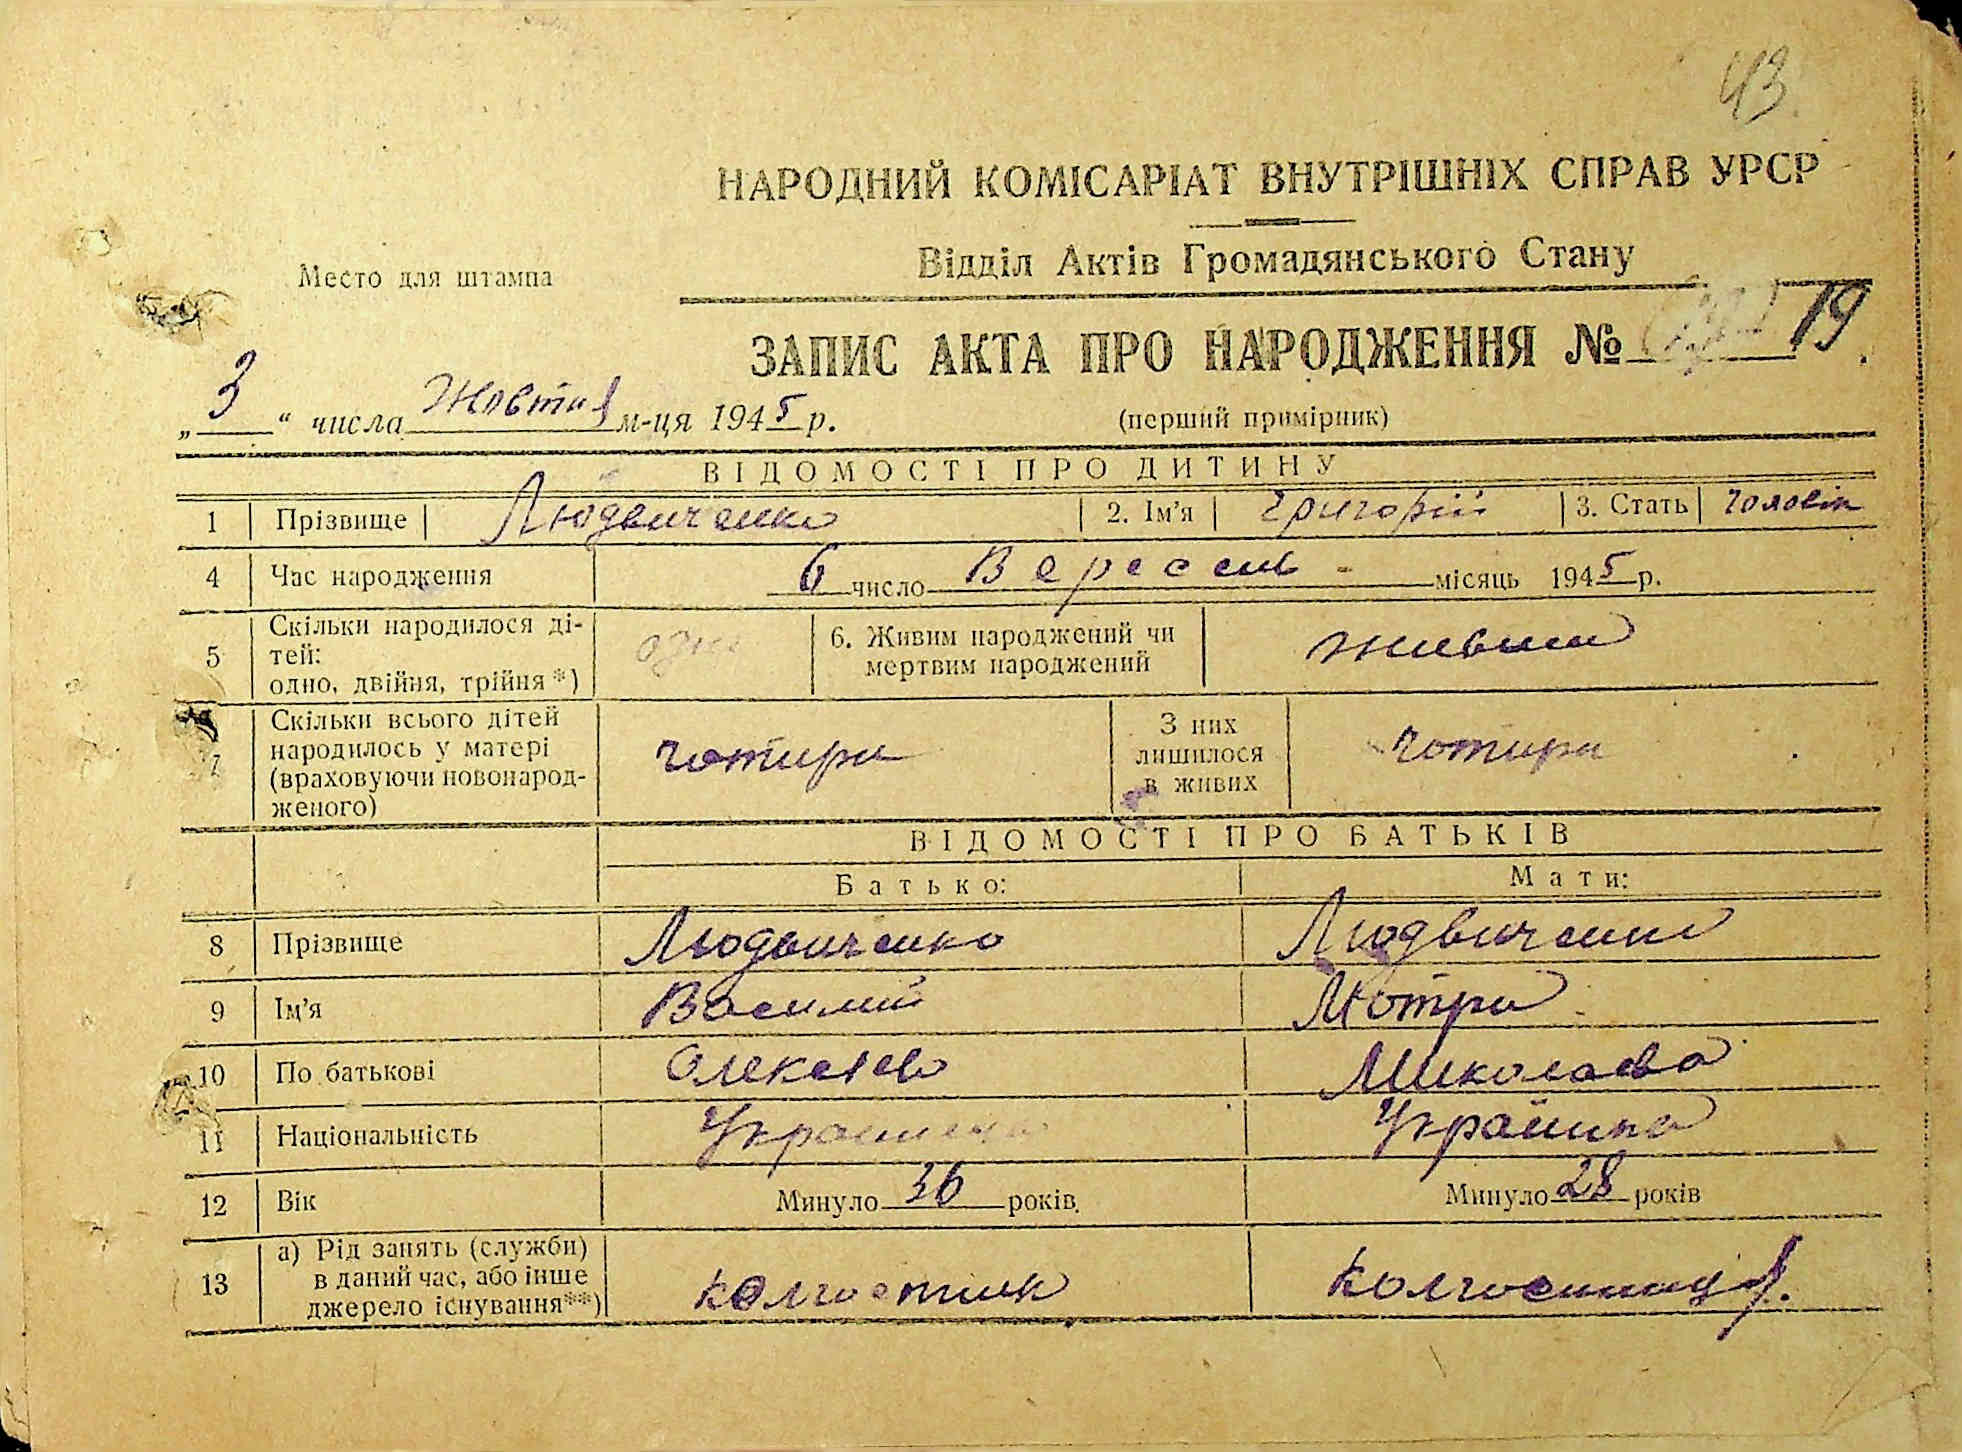 43
НАРОДНИЙ КОМІСАРІАТ ВНУТРІШНІХ СПРАВ УРСР
Відділ Актів Громадянського Стану
Место для штампа
ЗАПИС АКТА ПРО НАРОДЖЕННЯ № 19
„ 3 “ числа Жовтня м-ця 1945 р. (перший примірник)
ВІДОМОСТІ ПРО ДИТИНУ
1 Прізвище Людвиченко 2. Ім'я Григорій 3. Стать чоловік
4 Час народження 6 число Вересень - місяць 1945 р.
5 Скільки народилося ді-
тей:
одно, двійня, трійня*) одно 6. Живим народжений чи
мертвим народжений живим
7 Скільки всього дітей
народилось у матері
(враховуючи новонарод-
женого) чотири З них
лишилося
в живих чотири
ВІДОМОСТІ ПРО БАТЬКІВ
Батько: Мати:
8 Прізвище Людвиченко Людвиченко
9 Ім'я Василий Мотря
10 По батькові Олексієв Миколаєва
11 Національність Українець Українка
12 Вік Минуло 36 років. Минуло 28 років
13 а) Рід занять (служби)
в даний час, або інше
джерело існування**) колгоспник колгоспниця.